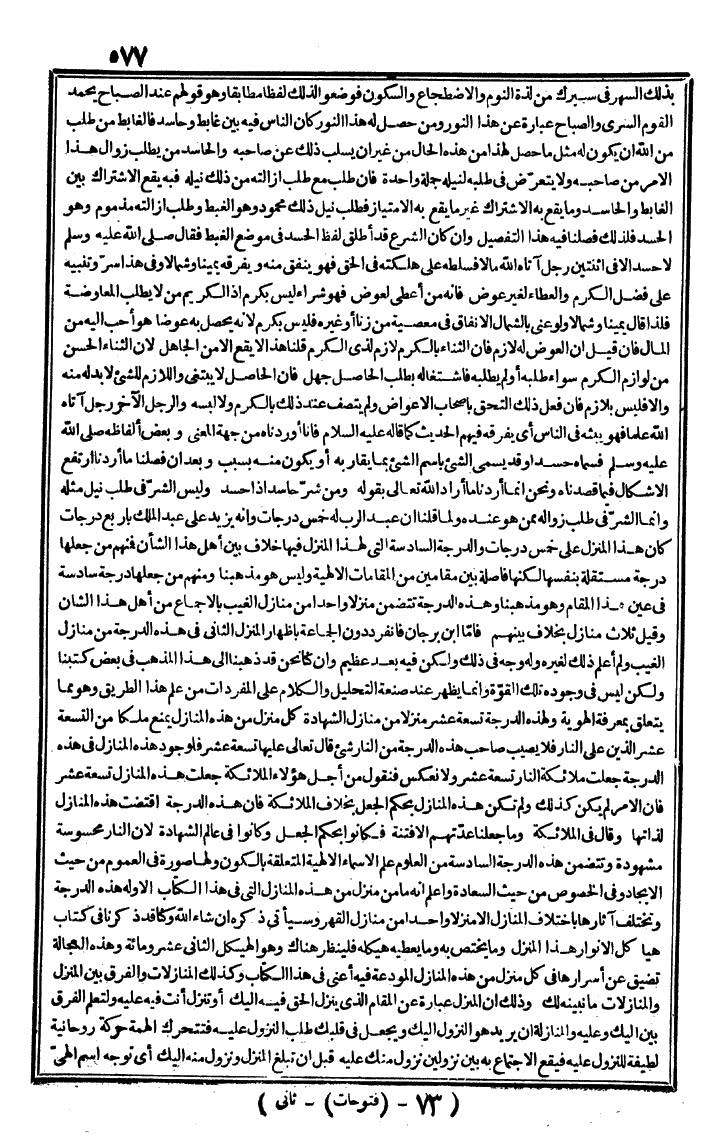 ٥٧٧
بذلك السهر فى سيرك من لذة النوم والاضطجاع والسكون فوضعو الذلك لفظا مطابقا وهو قولهم عند الصباح يحمد
القوم السرى والصباح عبارة عن هذا النور ومن حصل له هذا النور كان الناس فيه بين غابط وحاسد فالغابط من طلب
من الله ان يكون له مثل ما حصل لهذا من هذه الحال من غير ان يسلب ذلك عن صاحبه والحاسد من يطلب زوال هذا
الامر من صاحبه ولا يتعرّض فى طلبه لنيله جملة واحدة فان طلب مع طلب ازالته من ذلك نيله فبه يقع الاشتراك بين
الغابط والحاسد وما يقع به الاشتراك غير ما يقع به الامتياز فطلب نيل ذلك محمود وهو الغبط وطلب ازالته مذموم وهو
الحسد فلذلك فصلنا فيه هذا التفصيل وان كان الشرع قد أطلق لفظ الحسد فى موضع الغبط فقال صلى الله عليه وسلم
لاحسد الا فى اثنتين رجل آتاه الله مالا فسلطه على هلكته فى الحق فهو ينفق منه ويفرقه يمينا وشمالا وفى هذا سرّ وتنبيه
على فضل الكرم والعطاء لغير عوض فانه من أعطى لعوض فهو شراء ليس بكرم اذ الكريم من لا يطلب المعاوضة
فلذا قال يمينا وشمالا ولو عنى بالشمال الانفاق فى معصية من زنا أو غيره فليس بكرم لانه يحصل به عوضا هو أحب اليه من
المال فان قيل ان العوض له لازم فان الثناء بالكرم لازم لذى الكرم قلنا هذا لا يقع الا من الجاهل لان الثناء الحسن
من لوازم الكرم سواء طلبه أو لم يطلبه فاشتغاله بطلب الحاصل جهل فان الحاصل لا يبتغى واللازم للشئ لا بد له منه
والا فليس بلازم فان فعل ذلك التحق باصحاب الاعواض ولم يتصف عند ذلك بالكرم ولا لبسه والرجل الآخر رجل آتاه
الله علما فهو يبثه فى الناس أى يفرقه فيهم الحديث كما قاله عليه السلام فانا أوردناه من جهة المعنى و بعض ألفاظه صلى الله
عليه وسلم فسماه حسدا وقد يسمى الشئ باسم الشئ بما يقار به أو يكون منه بسبب و بعد ان فصلنا ما أردنا ارتفع
الاشكال فيما قصدناه ونحن انما أردنا ما أراد الله تعالى بقوله ومن شرّ حاسد اذا حسد وليس الشرّ فى طلب نيل مثله
وانما الشرّ فى طلب زواله ممن هو عنده ولما قلنا ان عبد الرب له خمس درجات وانه يزيد على عبد الملك بار بع درجات
كان هذا المنزل على خمس درجات والدرجة السادسة التى لهذا المنزل فيها خلاف بين أهل هذا الشأن فمنهم من جعلها
درجة مستقلة بنفسها لكنها فاصلة بين مقامين من المقامات الالهية وليس هو مذهبنا ومنهم من جعلها درجة سادسة
فى عين هذا المقام وهو مذهبنا وهذه الدرجة تتضمن منزلا واحدا من منازل الغيب بالاجماع من أهل هذا الشان
وقيل ثلاث منازل بخلاف بينهم فامّا ابن برجان فانفرد دون الجماعة باظهار المنزل الثانى فى هذه الدرجة من منازل
الغيب ولم أعلم ذلك لغيره وله وجه فى ذلك ولكن فيه بعد عظيم وان كنا نحن قد ذهبنا الى هذا المذهب فى بعض كتبنا
ولكن ليس فى وجوده تلك القوّة وانما يظهر عند صنعة التحليل والكلام على المفردات من علم هذا الطريق وهو مما
يتعلق بمعرفة الهوية ولهذه الدرجة تسعة عشر منزلا من منازل الشهادة كل منزل من هذه المنازل يمنع ملكا من التسعة
عشر الذين على النار فلا يصيب صاحب هذه الدرجة من النار شئ قال تعالى عليها تسعة عشر فاوجود هذه المنازل فى هذه
الدرجة جعلت ملائكة النار تسعة عشر ولا نعكس فنقول من أجل هؤلاء الملائكة جعلت هذه المنازل تسعة عشر
فان الامر لم يكن كذلك ولم تكن هذه المنازل بحكم الجعل بخلاف الملائكة فان هذه الدرجة اقتضت هذه المنازل
لذاتها وقال فى الملائكة وما جعلنا عدّتهم الا فتنة فكانوا بحكم الجعل وكانوا فى عالم الشهادة لان النار محسوسة
مشهودة وتتضمن هذه الدرجة السادسة من العلوم علم الاسماء الالهية المتعلقة بالكون ولها صورة فى العموم من حيث
الايجاد وفى الخصوص من حيث السعادة واعلم انه ما من منزل من هذه المنازل التى فى هذا الكتاب الا وله هذه الدرجة
وتختلف آثارها باختلاف المنازل الا منزلا واحدا من منازل القهر وسيأتى ذكره ان شاء الله وكنا قد ذكرنا فى كتاب
هيا كل الانوار هذا المنزل وما يختص به وما يعطيه هيكله فلينظر هناك وهو الهيكل الثانى عشر ومائة وهذه العجالة
تضيق عن أسرار ها فى كل منزل من هذه المنازل المودعة فيه أعنى فى هذا الكتاب وكذلك المنازلات والفرق بين المنزل
والمنازلات ما نبينه لك وذلك ان المنزل عبارة عن المقام الذى ينزل الحق فيه اليك أو تنزل أنت فيه عليه ولتعلم الفرق
بين اليك وعليه والمنازلة ان يريد هو النزول اليك ويجعل فى قلبك طلب النزول عليه فتتحرك الهمة حركة روحانية
لطيفة للنزول عليه فيقع الاجتماع به بين نزولين نزول منك عليه قبل ان تبلغ المنزل ونزول منه اليك أى توجه اسم الهىّ
( ٧٣ - (فتوحات) - ثانى )